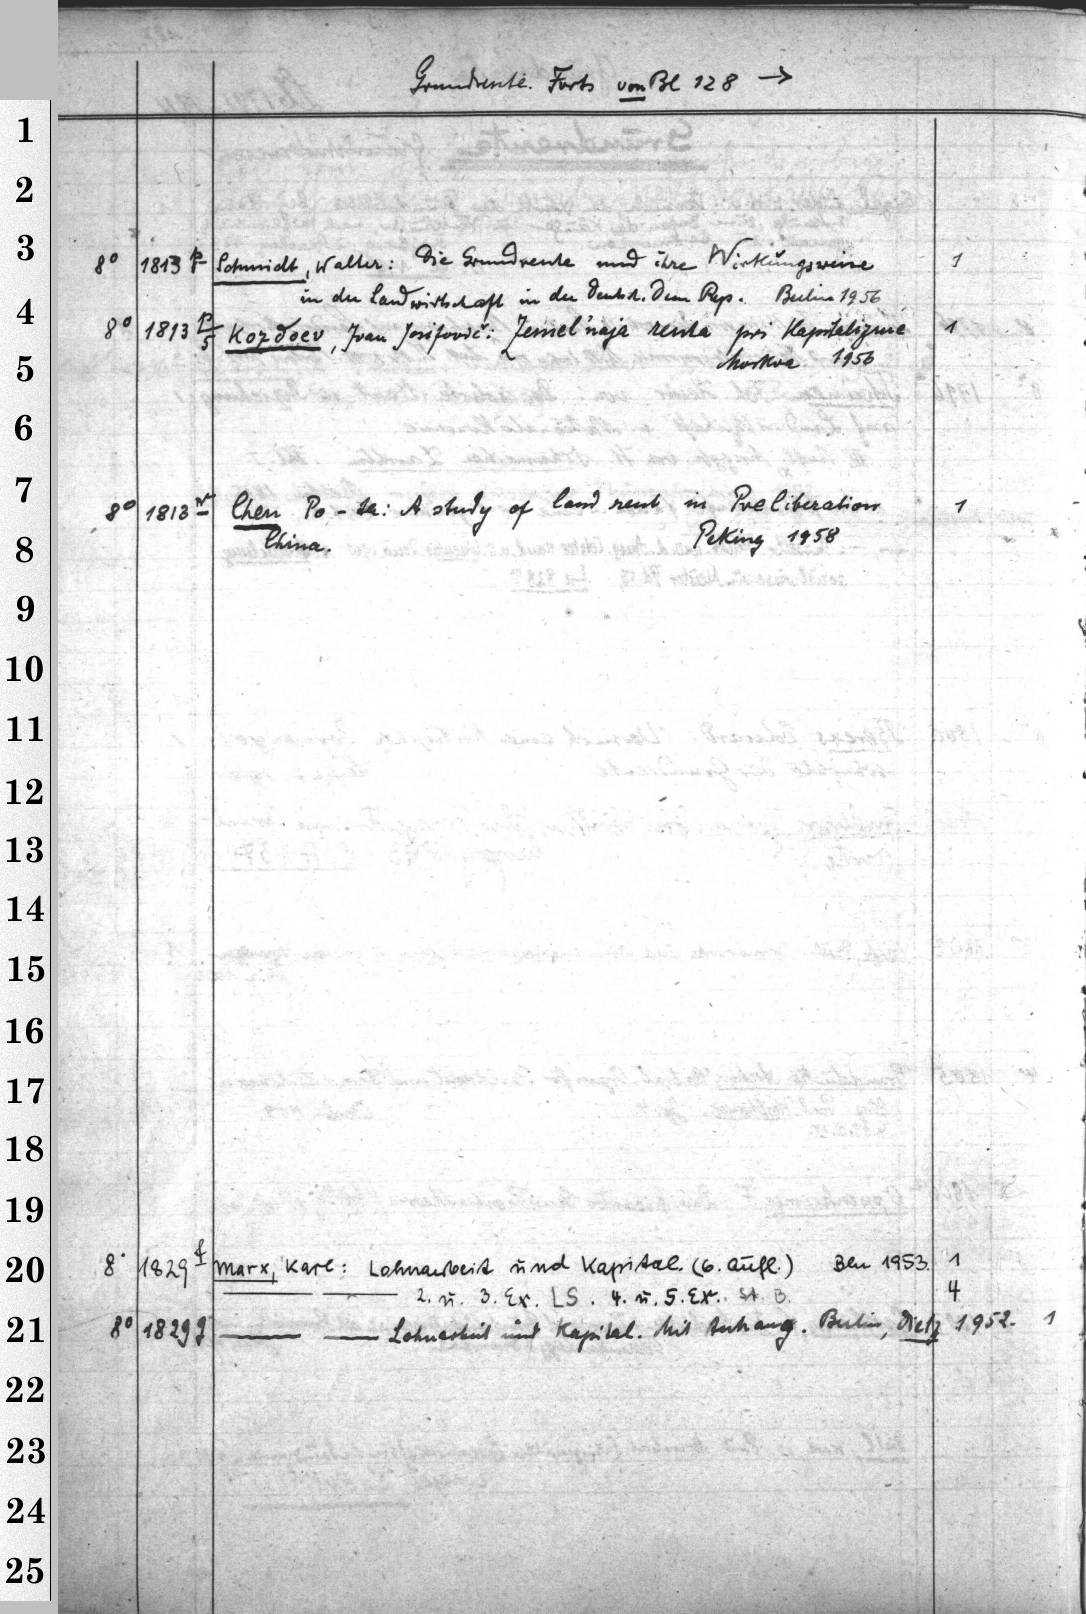 Grundrente. Forts von Bl 128 →
1
2
3
8° 1813 Schmidt, Walter: Die Grundrente und ihre Wirkungsweise 1
in der Landwirtschaft in der Deutsch. Dem Rep. Berlin 1956
4
8° 1813 p/5 Kozdoev, Ivan Josifovič: Zemel'naja renta pri Kapitalizme 1
5
Moskva 1956
6
7
8° 1813 Chen Po-ta: A study of land rent in Preliberation 1
8
China. Peking 1958
9
10
11
12
13
14
15
16
17
18
19
20
8° 1829 f Marx, Karl: Lohnarbeit und Kapital. (6. Aufl.) Bln 1953. 1
—— —— 2. u. 3. Ex. LS. 4. u. 5. Ex. St. B. 4
21
8° 1829 g —— —— Lohnarbeit und Kapital. Mit Anhang. Berlin, Dietz 1952. 1
22
23
24
25